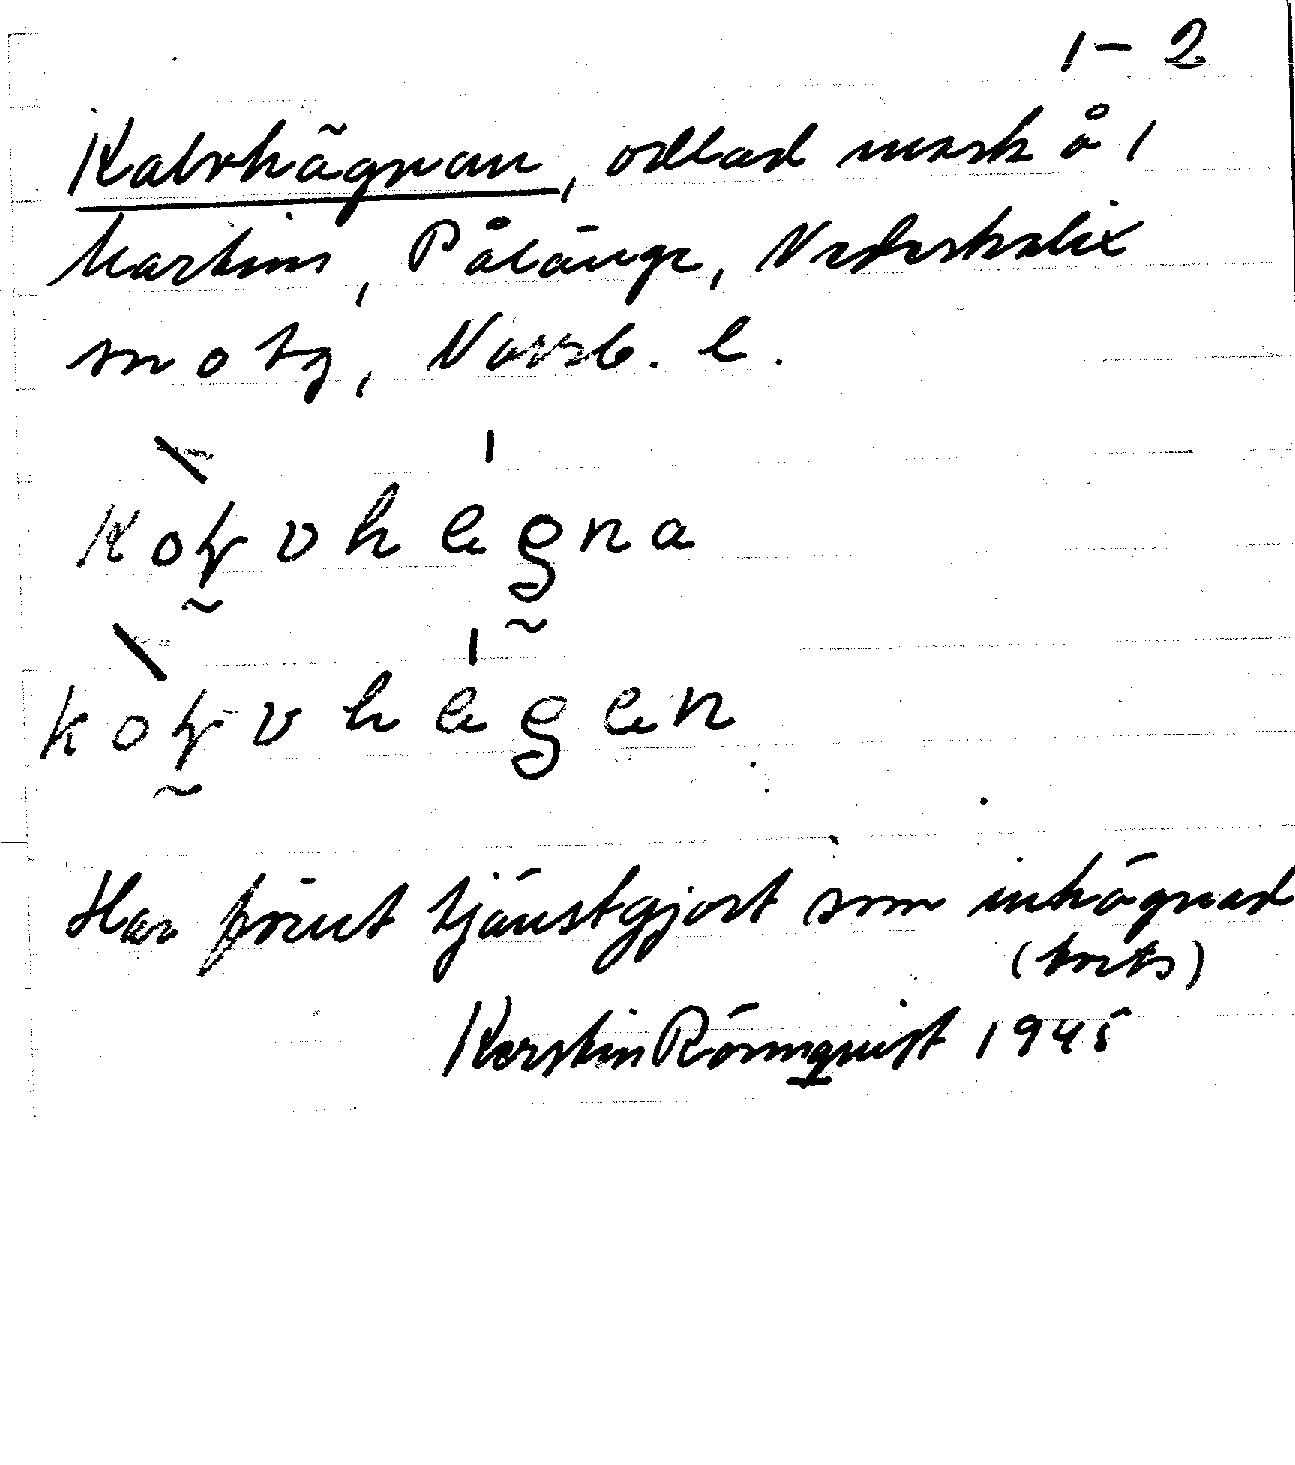 1 – 2
Kalvhägnan, odlad mark å 1
Martins, Pålänge, Nederkalix
sn o tg, Norrb. l.
Har förut tjänstgjort som inhägnad
Kerstin Rönnquist 1945